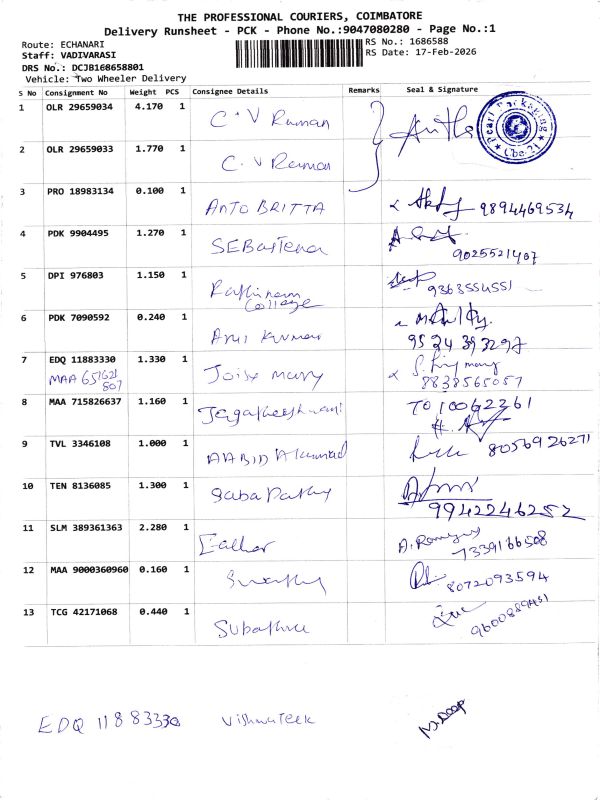 THE PROFESSIONAL COURIERS, COIMBATORE
Delivery Runsheet - PCK - Phone No.:9047080280 - Page No.:1
Route: ECHANARI
Staff: VADIVARASI
DRS No.: DCJB168658801
Vehicle: Two Wheeler Delivery
RS No.: 1686588
RS Date: 17-Feb-2026
S No Consignment No Weight PCS Consignee Details Remarks Seal & Signature
1 OLR 29659034 4.170 1 C. V Raman
Pearl Marketing Cbe-21
2 OLR 29659033 1.770 1 C. V Raman
3 PRO 18983134 0.100 1 ANTO BRITTA 9894469534
4 PDK 9904495 1.270 1 9025521407
5 DPI 976803 1.150 1 Rathinam College 9363554551
6 PDK 7090592 0.240 1 Arul Kumar 9524393297
7 EDQ 11883330 1.330 1 Joisy mary 8838565057
MAA 651621
807
8 MAA 715826637 1.160 1 Jagatheeshwari TO10062361
9 TVL 3346108 1.000 1 AABID Ahamad 8056926271
10 TEN 8136085 1.300 1 Saba Pathy 9942246252
11 SLM 389361363 2.280 1 7339166508
12 MAA 9000360960 0.160 1 8072093594
13 TCG 42171068 0.440 1 Subathra 9600889451
EDQ 11883330